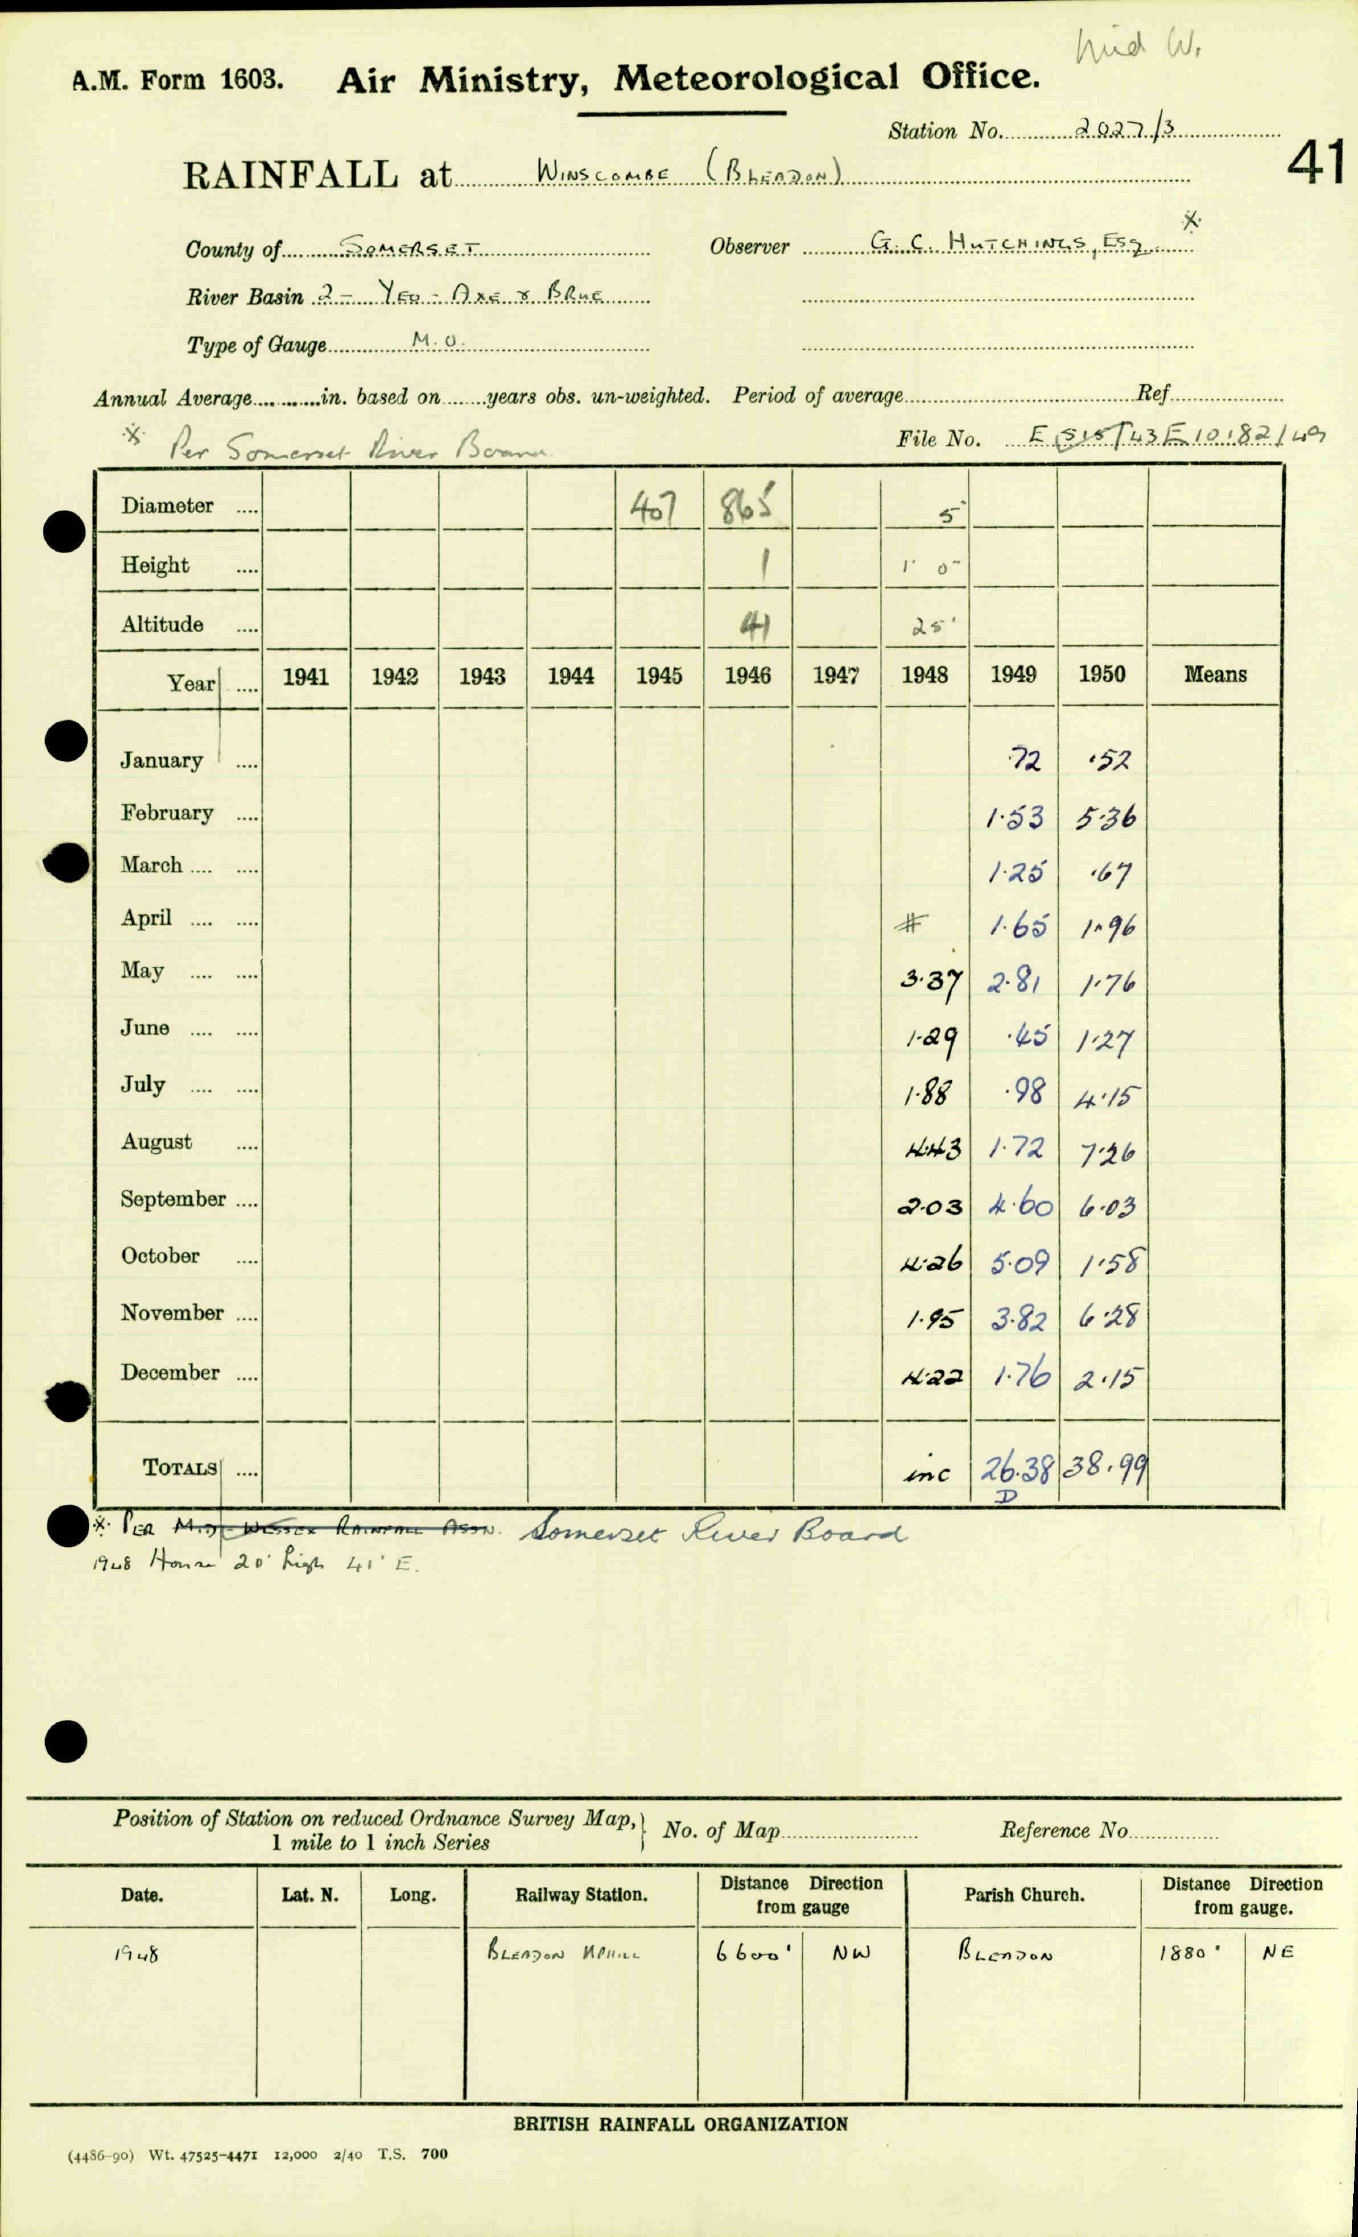 Mid W.
A.M. Form 1603. Air Ministry, Meteorological Office.
Station No. 2027/3
41
RAINFALL at WINSCOMBE (BLEADON)
County of SOMERSET Observer G. C. HUTCHINGS, ESQ. *
River Basin 2 - YEO - AXE & BRUE
Type of Gauge M.O.
Annual Average in. based on years obs. un-weighted. Period of average Ref
* Per Somerset River Board File No. E 10182/49
Diameter .... 407 865 5"
Height .... 1 1' 0"
Altitude .... 41 25'
Year .... 1941 1942 1943 1944 1945 1946 1947 1948 1949 1950 Means
January .... .72 .52
February .... 1.53 5.36
March .... .... 1.25 .67
April .... .... # 1.65 1.96
May .... .... 3.37 2.81 1.76
June .... .... 1.29 .45 1.27
July .... .... 1.88 .98 4.15
August .... 4.43 1.72 7.26
September .... 2.03 4.60 6.03
October .... 4.26 5.09 1.58
November .... 1.95 3.82 6.28
December .... 4.22 1.76 2.15
TOTALS .... inc 26.38 38.99
D
* PER MID-WESSEX RAINFALL ASSN. Somerset River Board
1948 House 20' high 41' E.
Position of Station on reduced Ordnance Survey Map, 1 mile to 1 inch Series } No. of Map Reference No.
Date. Lat. N. Long. Railway Station. Distance Direction from gauge Parish Church. Distance Direction from gauge.
1948 BLEADON UPHILL 6600' NW BLEADON 1880' NE
BRITISH RAINFALL ORGANIZATION
(4486-90) Wt. 47525-4471 12,000 2/40 T.S. 700